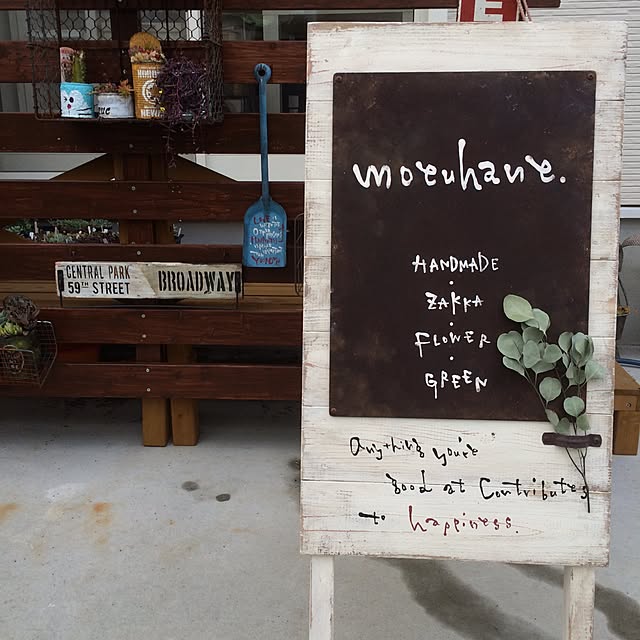 E
moeuhaue.
HANDMADE
ZAKKA
FLOWER
GREEN
Anything you're
good at Contributes
to happiness.
CENTRAL PARK
59TH STREET
BROADWAY